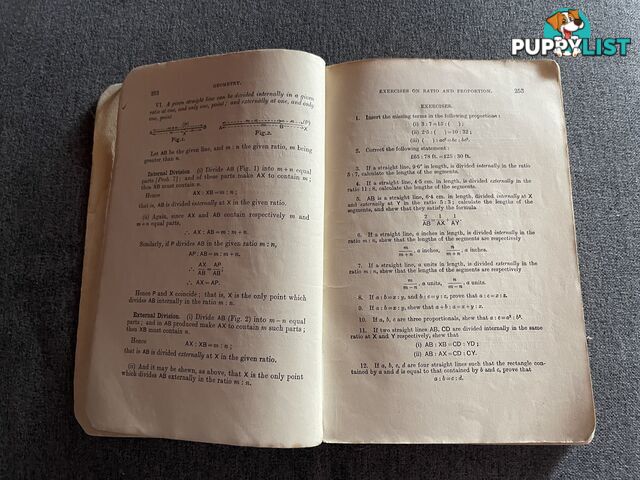 PUPPYLIST
GEOMETRY.
VI. A given straight line can be divided internally in a given
ratio at one, and only one, point; and externally at one, and only
one, point.
Fig.1.
Fig.2.
Let AB be the given line, and m : n the given ratio, m being
greater than n.
Internal Division (i) Divide AB (Fig. 1) into m+n equal
parts [Prob. 7]; and of these parts make AX to contain m;
then XB must contain n.
Hence AX : XB=m : n;
that is, AB is divided internally at X in the given ratio.
(ii) Again, since AX and AB contain respectively m and
m+n equal parts,
∴ AX : AB=m : m+n.
Similarly, if P divides AB in the given ratio m : n,
AP : AB=m : m+n.
∴ AX/AB=AP/AB.
∴ AX=AP.
Hence P and X coincide; that is, X is the only point which
divides AB internally in the ratio m : n.
External Division. (i) Divide AB (Fig. 2) into m−n equal
parts; and in AB produced make AX to contain m such parts;
then XB must contain n.
Hence AX : XB=m : n;
that is AB is divided externally at X in the given ratio.
(ii) And it may be shewn, as above, that X is the only point
which divides AB externally in the ratio m : n.
EXERCISES ON RATIO AND PROPORTION. 253
EXERCISES.
1. Insert the missing terms in the following proportions:
(i) 3 : 7=15 : ( );
(ii) 2·5 : ( )=10 : 32;
(iii) ( ) : ab²=bc : bc².
2. Correct the following statement:
£65 : 78 ft.=£25 : 30 ft.
3. If a straight line, 9·6" in length, is divided internally in the ratio
5 : 7, calculate the lengths of the segments.
4. If a straight line, 4·5 cm. in length, is divided externally in the
ratio 11 : 8, calculate the lengths of the segments.
5. AB is a straight line, 6·4 cm. in length, divided internally at X
and externally at Y in the ratio 5 : 3; calculate the lengths of the
segments, and shew that they satisfy the formula
2/AB=1/AX+1/AY.
6. If a straight line, a inches in length, is divided internally in the
ratio m : n, shew that the lengths of the segments are respectively
m/m+n . a inches, n/m+n . a inches.
7. If a straight line, a units in length, is divided externally in the
ratio m : n, shew that the lengths of the segments are respectively
m/m−n . a units, n/m−n . a units.
8. If a : b=x : y, and b : c=y : z, prove that a : c=x : z.
9. If a : b=x : y, shew that a+b : b=x+y : y.
10. If a, b, c, are three proportionals, shew that a : c=a² : b².
11. If two straight lines AB, CD are divided internally in the same
ratio at X and Y respectively, shew that
(i) AB : XB=CD : YD;
(ii) AB : AX=CD : CY.
12. If a, b, c, d are four straight lines such that the rectangle con-
tained by a and d is equal to that contained by b and c, prove that
a : b=c : d.